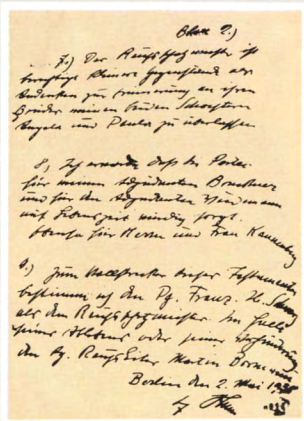 Blatt 2.)
7.) Der Reichsschatzmeister ist
berechtigt kleinere Gegenstände als
Andenken zur Erinnerung an
Bruder meinen beiden Schwestern
Angela und Paula zu überlassen
8.) Ich erwarte daß die Partei
für meinen Adjudanten Brückner
und für den Adjudanten Wiedemann
auf Lebenszeit würdig sorgt.
Ebenso für Herrn und Frau Kannenberg
9.) Zum Vollstrecker dieses Testamentes
bestimme ich den Pg. Franz X. Schwarz
als den Reichsschatzmeister. Im Falle
seiner oder seiner Verhinderung
den Pg. Reichsleiter Martin Bormann
Berlin den 2. Mai 1938